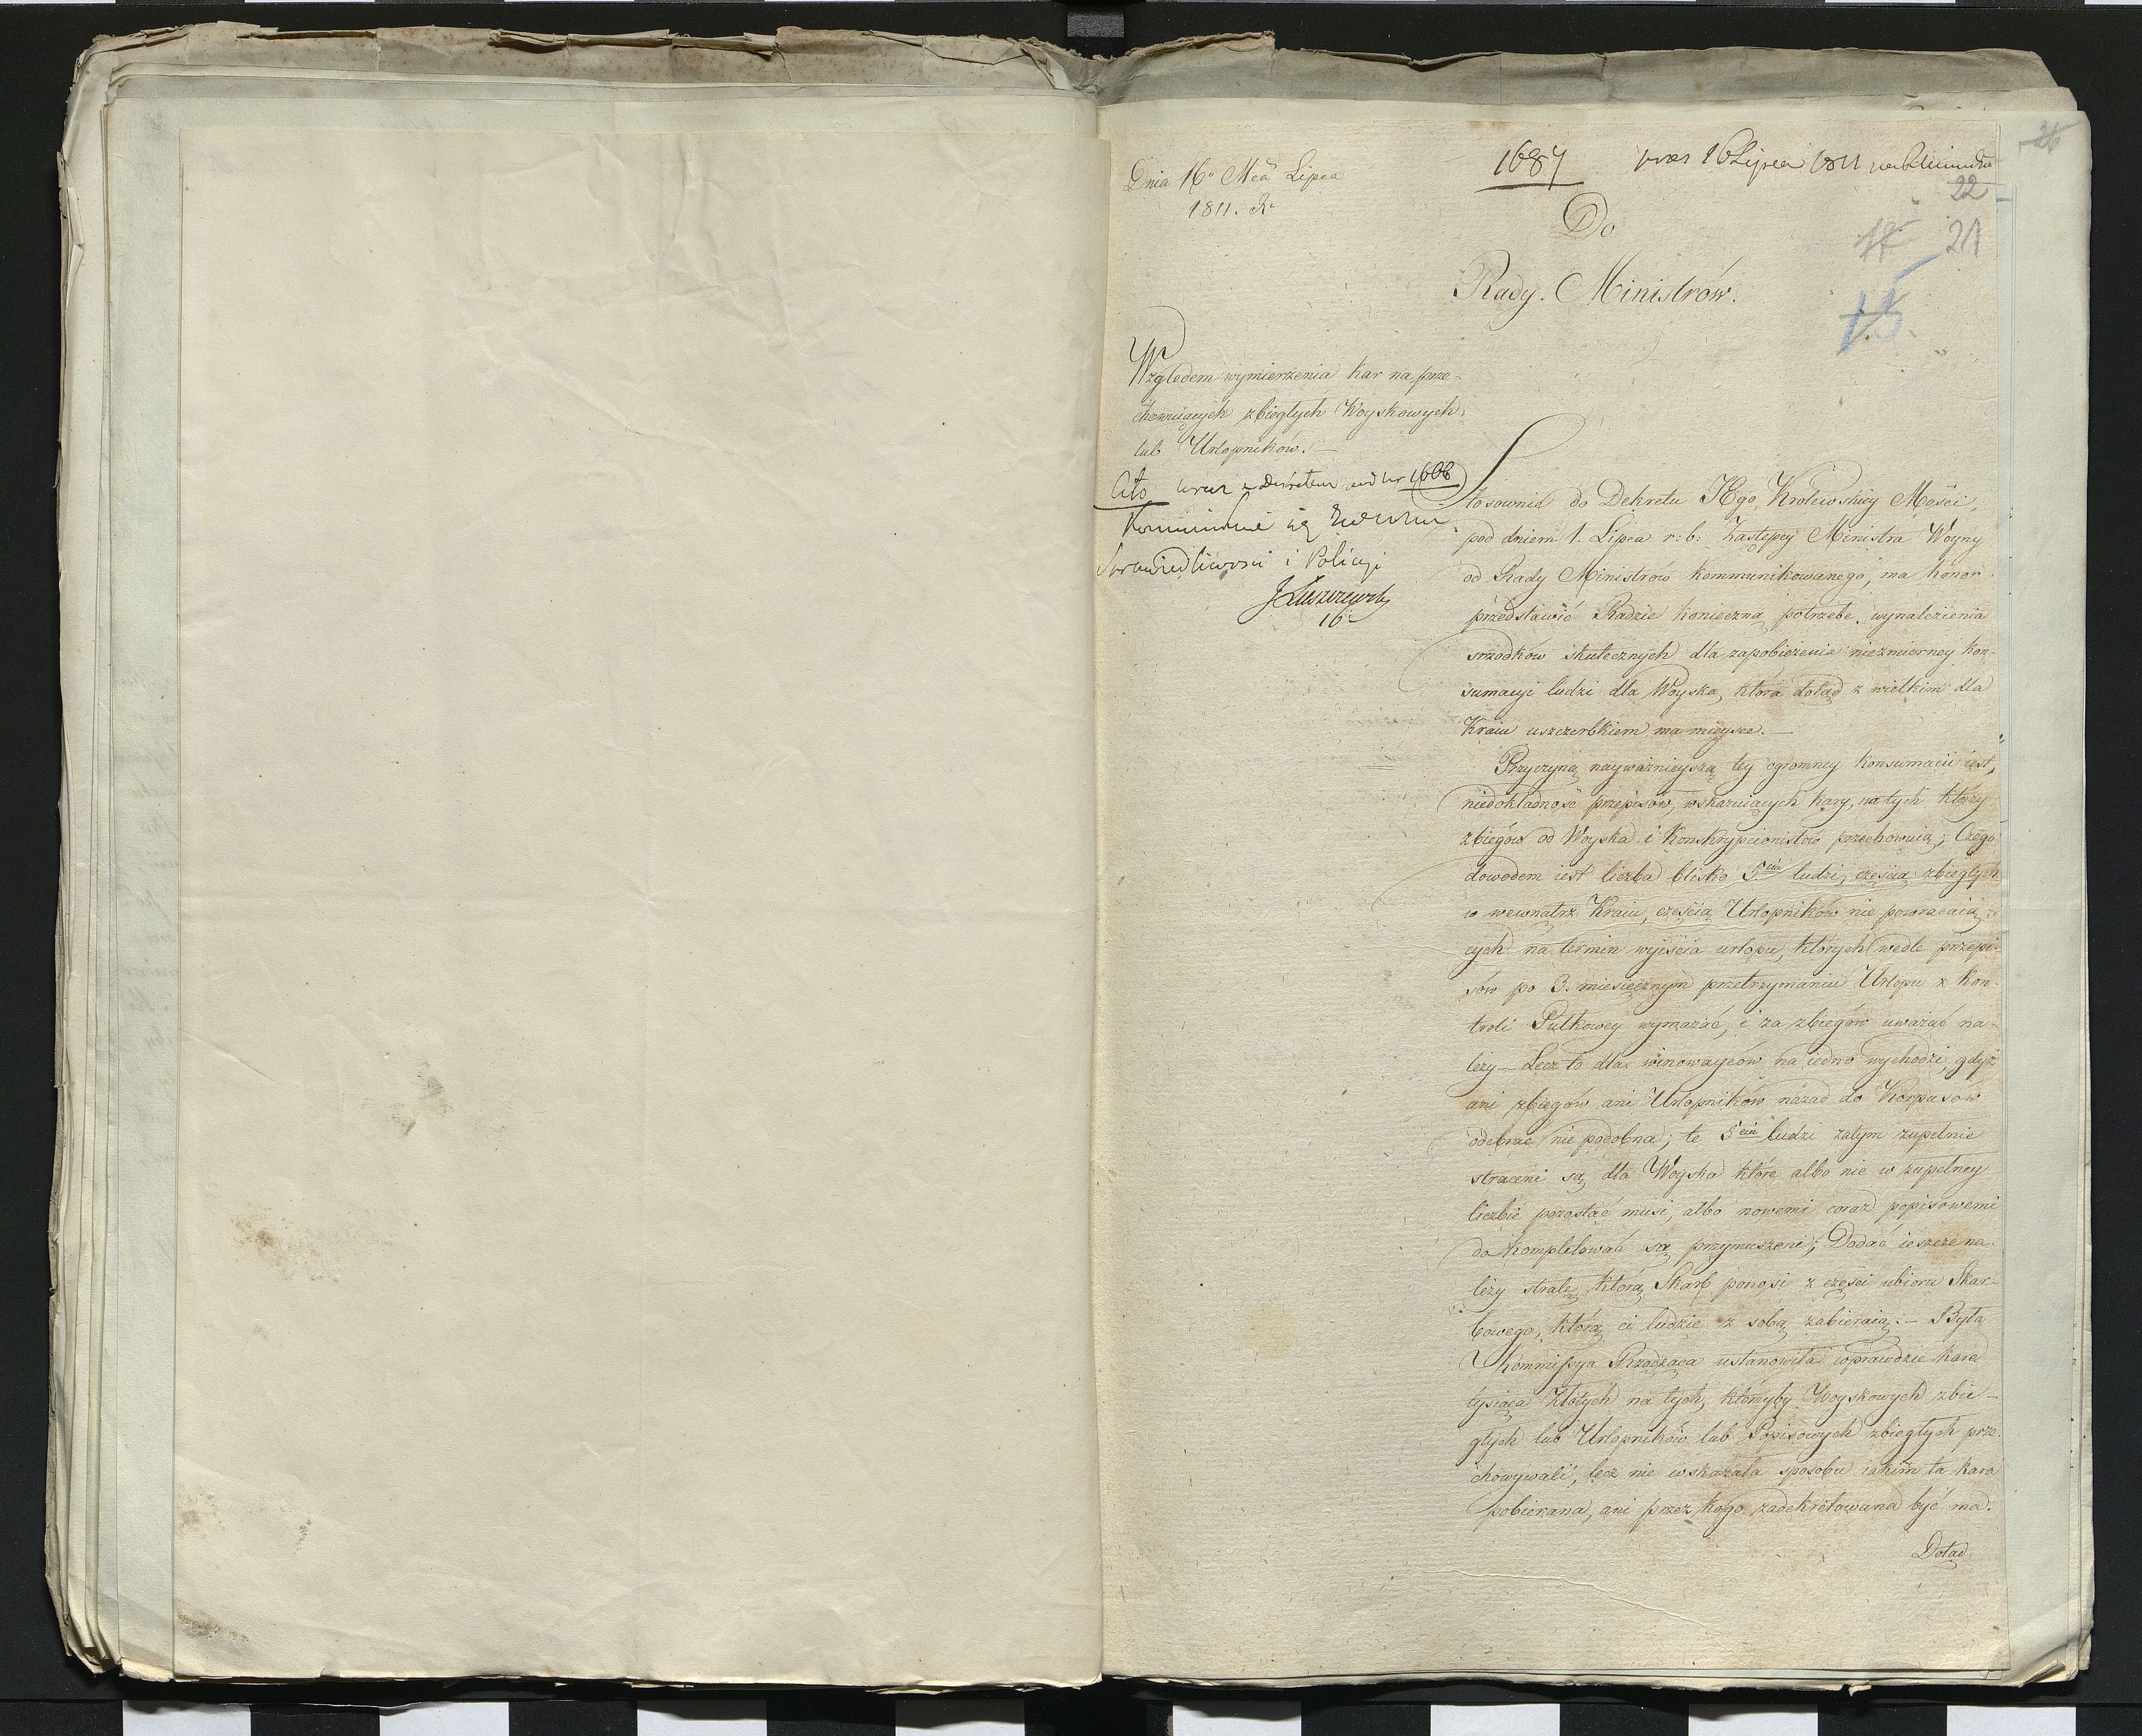 Dnia 16º Mca Lipca
1811. R.
1687
16 Lipca 1811
26
22
21
17
15.
Do
Rady Ministrów.
Względem wymierzenia kar na prze-
chowuiących zbiegłych Woyskowych
lub Urlopników. —
Cito wraz z Dekretem nr 1666
Sprawiedliwości i Policyi
JŁuszczewski
16
Stosownie do Dekretu JKgo Królewskiey Mości,
pod dniem 1. Lipca r: b: Zastępcy Ministra Woyny
od Rady Ministrów kommunikowanego, ma honor
przedstawić Radzie konieczną potrzebę, wynalezienia
srzodków skutecznych dla zapobieżenia niezmierney kon-
sumacyi ludzi dla Woyska, która dotąd z wielkim dla
Kraiu uszczerbkiem ma mieysce. —
Przyczyną nayważnieyszą tey ogromney konsumacii iest,
niedokładność przepisów, wskazuiących kary, na tych którzy
zbiegów od Woyska i Konskrypcionistów przechowuią; Czego
dowodem iest liczba blisko 5ciu ludzi, częścią zbiegłych
w wewnątrz Kraiu, częścią Urlopników nie powracaią-
cych na termin wyiścia urlopu, których wedle przepi-
sów po 3. miesięcznym przetrzymaniu Urlopu z kon-
troli Pułkowey wymazać, i za zbiegów uważać na-
leży — Lecz to dla winowayców na iedno wychodzi, gdyż
ani zbiegów ani Urlopników nazad do Korpusów
odebrać nie podobna; te 5ciu ludzi zatym zupełnie
straceni są dla Woyska które albo nie w zupełney
liczbie pozostać musi, albo nowemi coraz popisowemi
do kompletować są przymuszeni; Dodać ieszcze na-
leży stratę którą Skarb ponosi z części ubioru Skar-
bowego, którą ci ludzie z sobą zabieraią. — Była
Kommissya Rządząca ustanowiła wprawdzie karę
tysiąca Złotych na tych, którzyby Woyskowych zbie-
głych lub Urlopników lub Popisowych zbiegłych prze-
chowywali, lecz nie wskazała sposobu iakim ta kara
pobierana, ani przez kogo zadekretowana być ma.
Dotąd